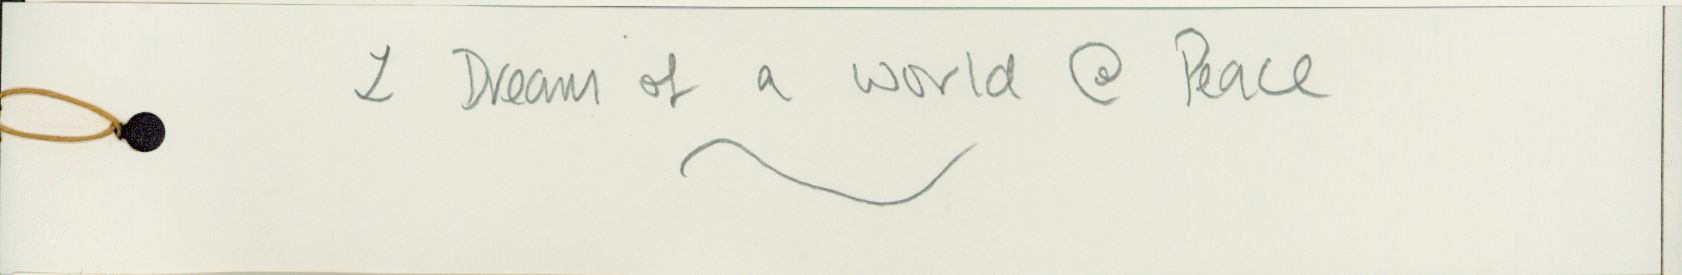 I Dream of a world @ Peace